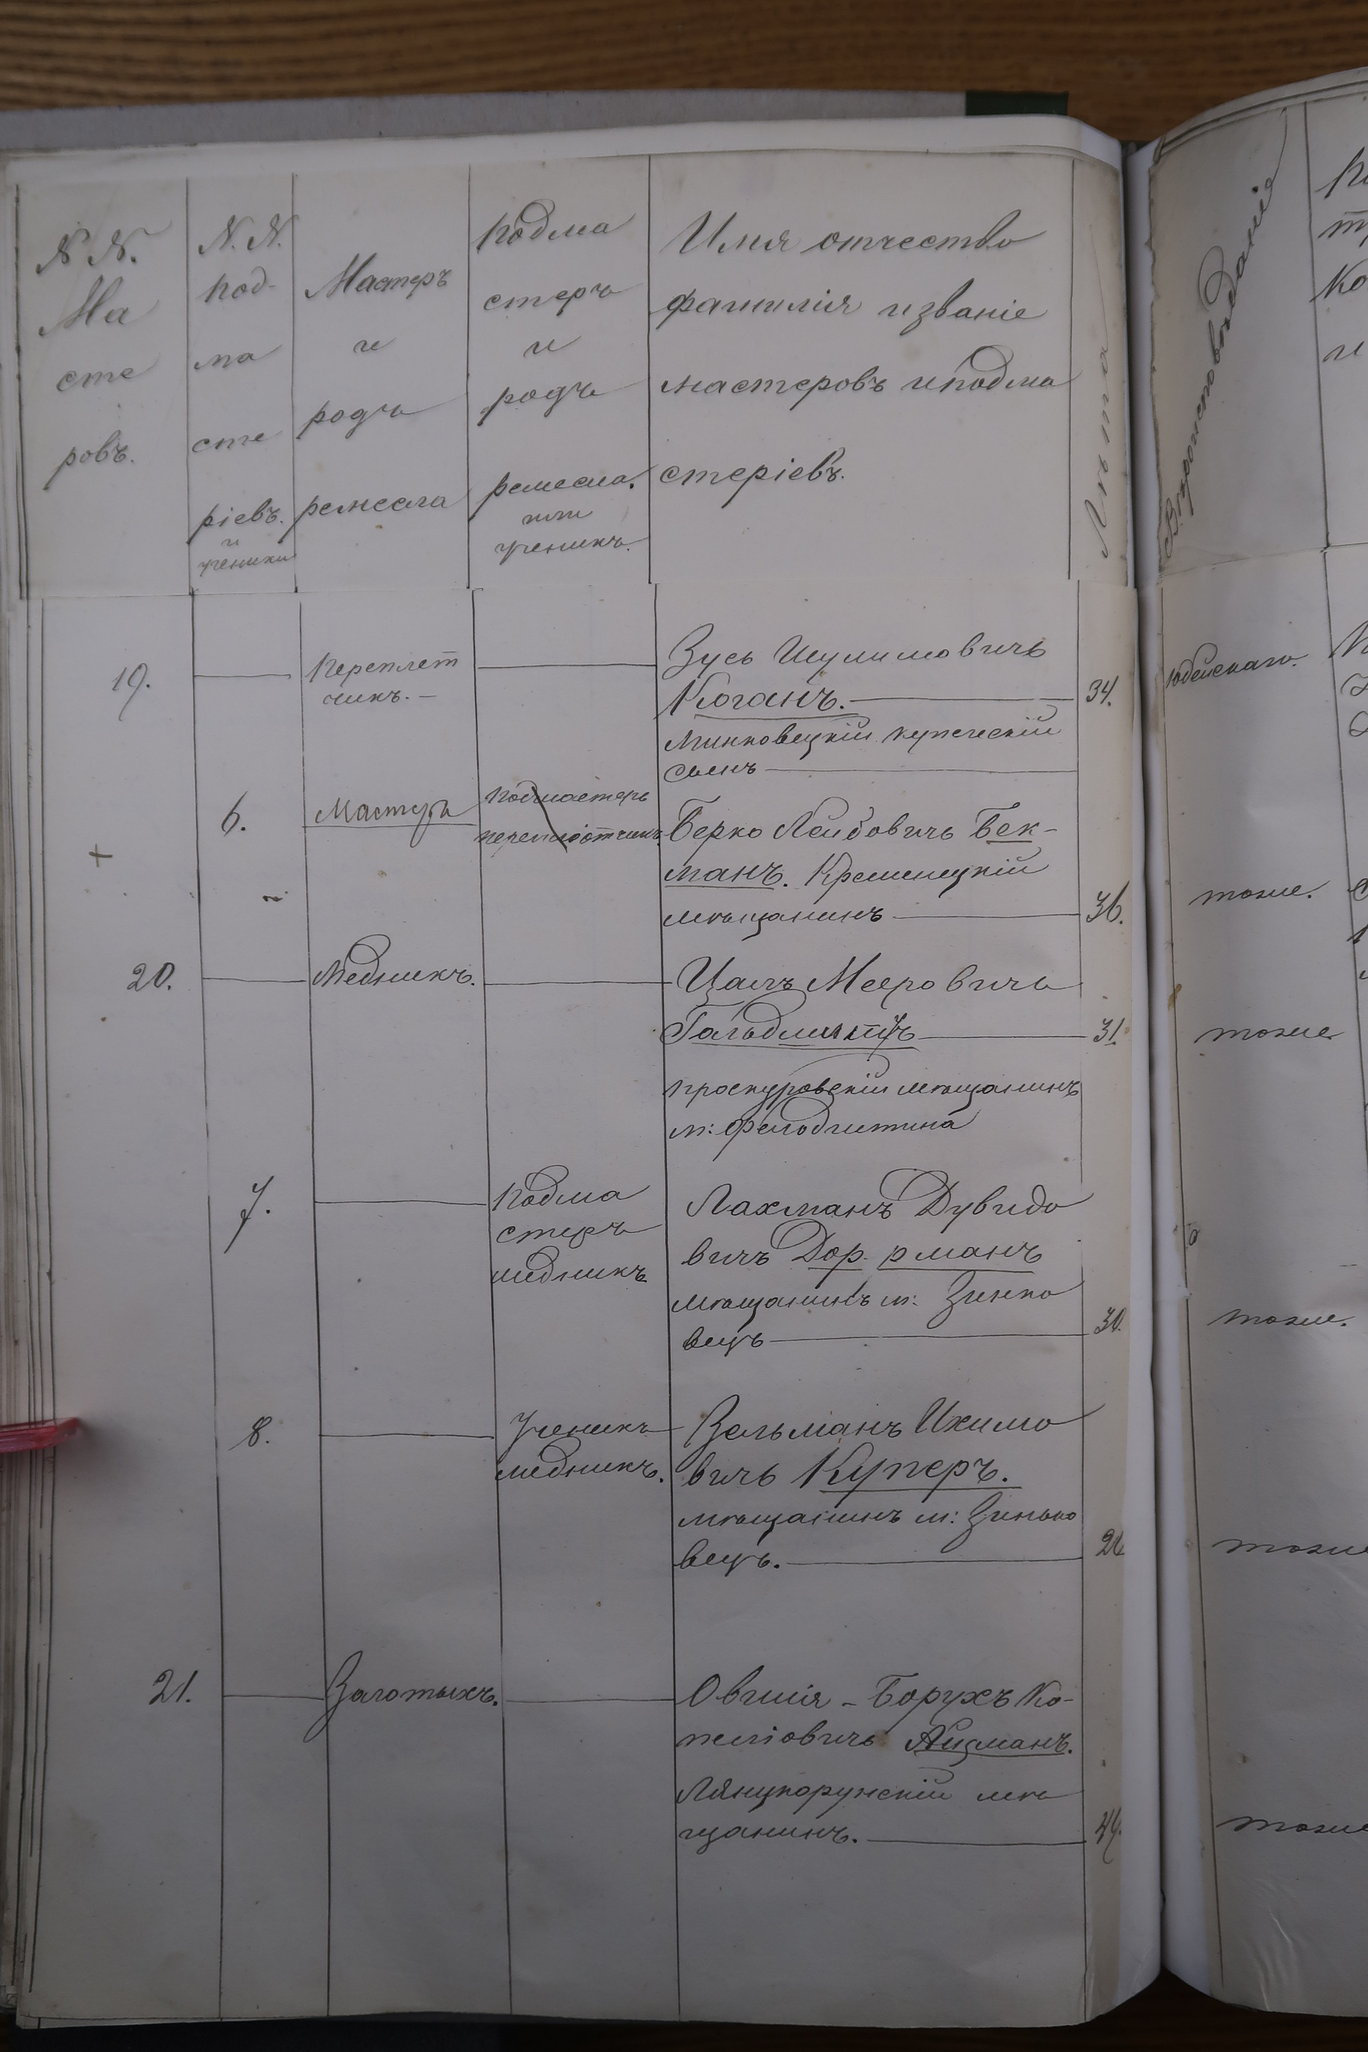 N. N. Ма сте ровъ.
N. N. под- ма сте ріевъ. и ученики
Мастеръ и родъ ремесла
Подма стеръ и родъ ремесла. или ученикъ.
Имя отчество
фамилія и званіе
мастеровъ и подма
стеріевъ.
Лѣта
Вѣроисповѣданіе
19. Переплет
чикъ.
Зусь Шулимовичъ
Коганъ. 34. Іудейскаго.
Миньковецкій купеческій
сынъ
6. Мастеръ Подмастеръ
переплетчикъ
Берко Лейбовичъ Бек-
манъ. Кременецкій
мѣщанинъ 36. тоже.
20. Медникъ. Цалъ Мееровичъ
31. тоже
Проскуровскій мѣщанинъ
м: Фельдштина
7. Подма
стеръ
медникъ
Лахманъ Дувидо
вичъ Дор-рманъ
мѣщанинъ м: Зинко
вецъ 30. тоже.
8. Ученикъ
медникъ.
Зельманъ Ихимо
вичъ Куперъ.
мѣщанинъ м: Зинько
вецъ. тоже
21. Овшія-Борухъ Ко-
пеліовичъ Айзманъ.
Лянцкорунскій мѣ
щанинъ. тоже